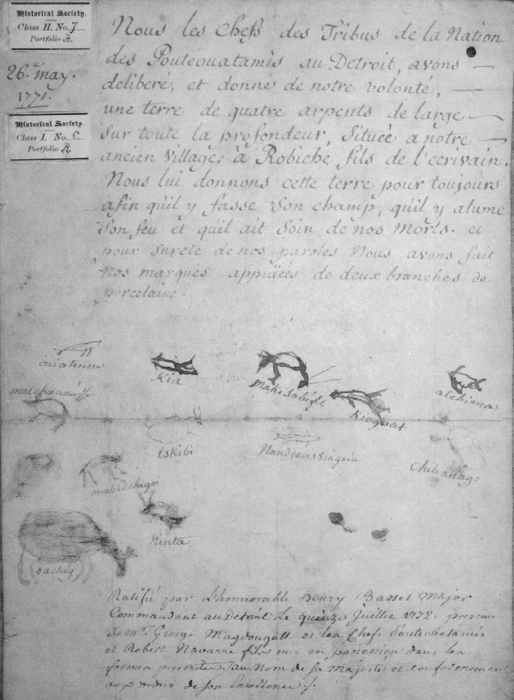 Historical Society.
Class H. No. 7
Portfolio A.
26. may.
1771.
Historical Society
Class I. No.
Portfolio A.
Nous les Chefs des Tribus de la Nation
des Pouteouatamis au Detroit, avons —
deliberé, et donné de notre volonté, —
une terre de quatre arpents de large —
sur toute la profondeur, Située a notre
ancien Village, à Robiche, fils de l'ecrivain.
Nous lui donnons cette terre pour toujours
afin quil y fasse Son champ, quil y alume
Son feu et quil ait Soin de nos Morts. et
pour Sureté de nos paroles Nous avons fait
Nos marques appuiées de deux branches de
porcelaine.
ouiaterin
Kia
Kioquas
alekima
Eskibi
Chibar
ouabidchigo
Kinta
Eachig
Ratifié par L'honnorable Henry Basset Major
Commandant au detroit Le quinze Juillet 1772. presence
de mr. George Magdougall et les Chefs Pouteouatamis
et Robert Navarre fils mis en possession dans les
formes au Nom de Sa Majesté et conformement
aux ordres de Son Excellence